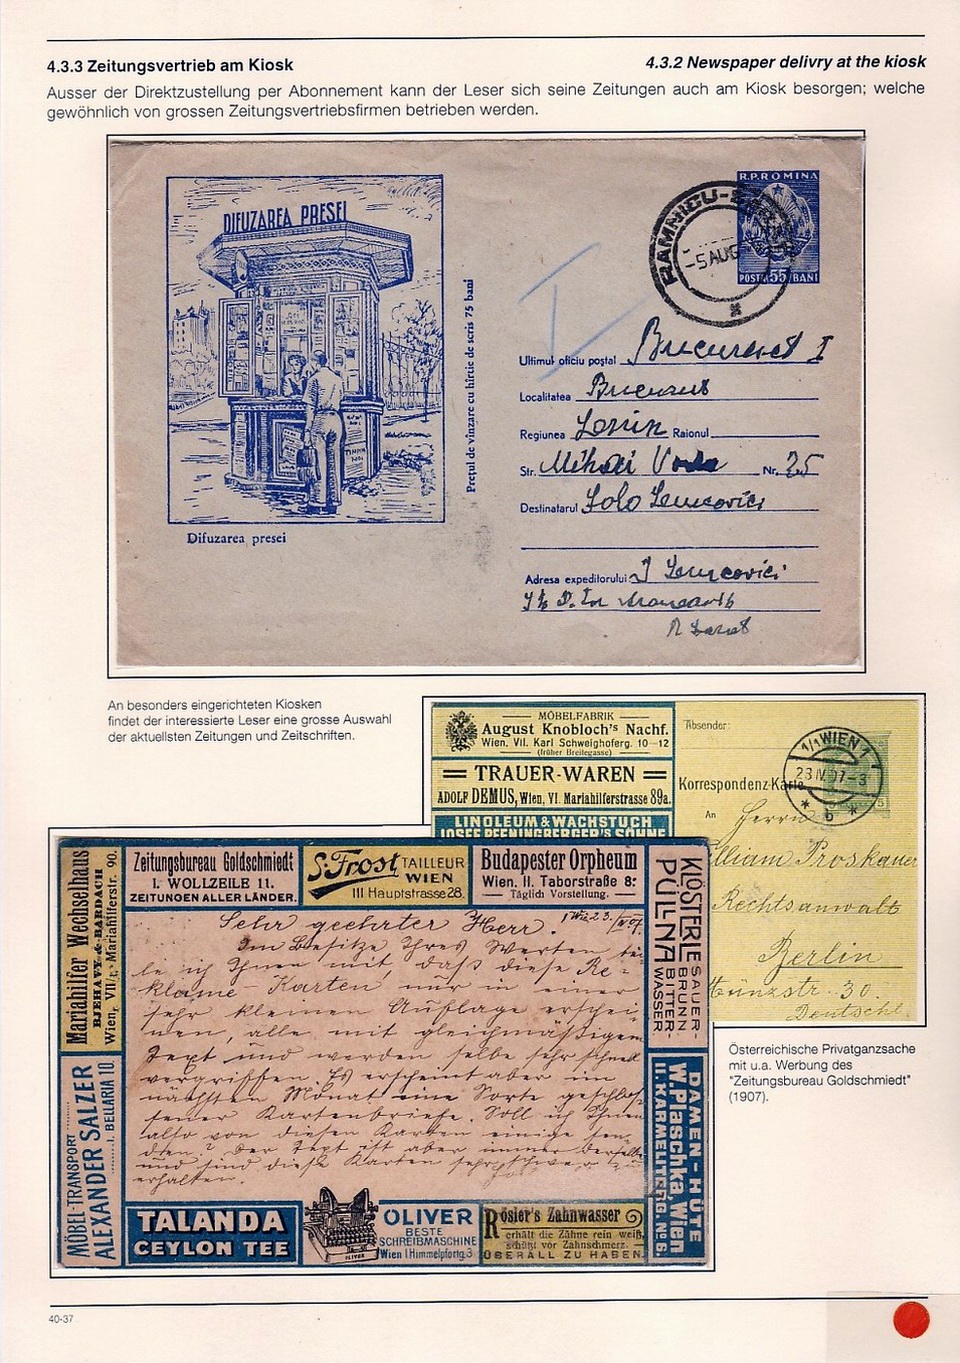 4.3.3 Zeitungsvertrieb am Kiosk
4.3.2 Newspaper delivry at the kiosk
Ausser der Direktzustellung per Abonnement kann der Leser sich seine Zeitungen auch am Kiosk besorgen; welche
gewöhnlich von grossen Zeitungsvertriebsfirmen betrieben werden.
DIFUZAREA PRESEI
Difuzarea presei
Prețul de vînzare cu hîrtie de scris 75 bani
R.P.ROMINA
POSTA 55 BANI
-5 AUG
Ultimul oficiu poștal București I
Localitatea București
Regiunea Lenin Raionul
Str. Mihai Voda Nr. 25
Destinatarul Solo Lencovici
Adresa expeditorului I Lencovici
An besonders eingerichteten Kiosken
findet der interessierte Leser eine grosse Auswahl
der aktuellsten Zeitungen und Zeitschriften.
MÖBELFABRIK
August Knobloch's Nachf.
Wien, VII. Karl Schweighoferg. 10–12
(früher Breitegasse)
TRAUER-WAREN
ADOLF DEMUS, Wien, VI. Mariahilferstrasse 89a.
LINOLEUM & WACHSTUCH
JOSEF PFENINGBERGER'S SÖHNE
Absender:
Korrespondenz-Karte
1/1 WIEN 1
23 IV 07-3
* 6 *
5
An Herrn
illiam Proskauer
Rechtsanwalt
Berlin
Münzstr. 30.
Deutschl.
Mariahilfer Wechselhaus
BJEHAVY & BARDACH
Wien, VII/1, Mariahilferstr. 90.
Zeitungsbureau Goldschmiedt
I. WOLLZEILE 11.
ZEITUNGEN ALLER LÄNDER.
S. Frost TAILLEUR
WIEN
III Hauptstrasse 28.
Budapester Orpheum
Wien. II. Taborstraße 8:
Täglich Vorstellung.
KLÖSTERLE SAUERBRUNN
PÜLLNA BITTERWASSER
Sehr geehrter Herr.
Wie 23./IV. 07.
Im Besitze Ihres Werten tei-
le ich Ihnen mit, daß diese Re-
klame-Karten nur in einer
sehr kleinen Auflage erschei-
nen, alle mit gleichmäßigen
Text und werden selbe sehr schnell
vergriffen. Es erscheint aber im
nächsten Monat eine Sorte geschlos-
sener Kartenbriefe. Soll ich Ihnen
also von diesen Karten einige sen-
den? Der Text ist aber immer derselbe
und sind diese Karten sehr schwer zu
erhalten.
MÖBEL-TRANSPORT
ALEXANDER SALZER
I. BELLARIA 10.
DAMEN-HÜTE
W. Plaschka, Wien
II. KARMELITERG. No 6.
TALANDA
CEYLON TEE
OLIVER
OLIVER
BESTE
SCHREIBMASCHINE
Wien I Himmelpfortg. 3
Rösler's Zahnwasser
erhält die Zähne rein weiß,
schützt vor Zahnschmerz.
ÜBERALL ZU HABEN.
Österreichische Privatganzsache
mit u.a. Werbung des
"Zeitungsbureau Goldschmiedt"
(1907).
40-37